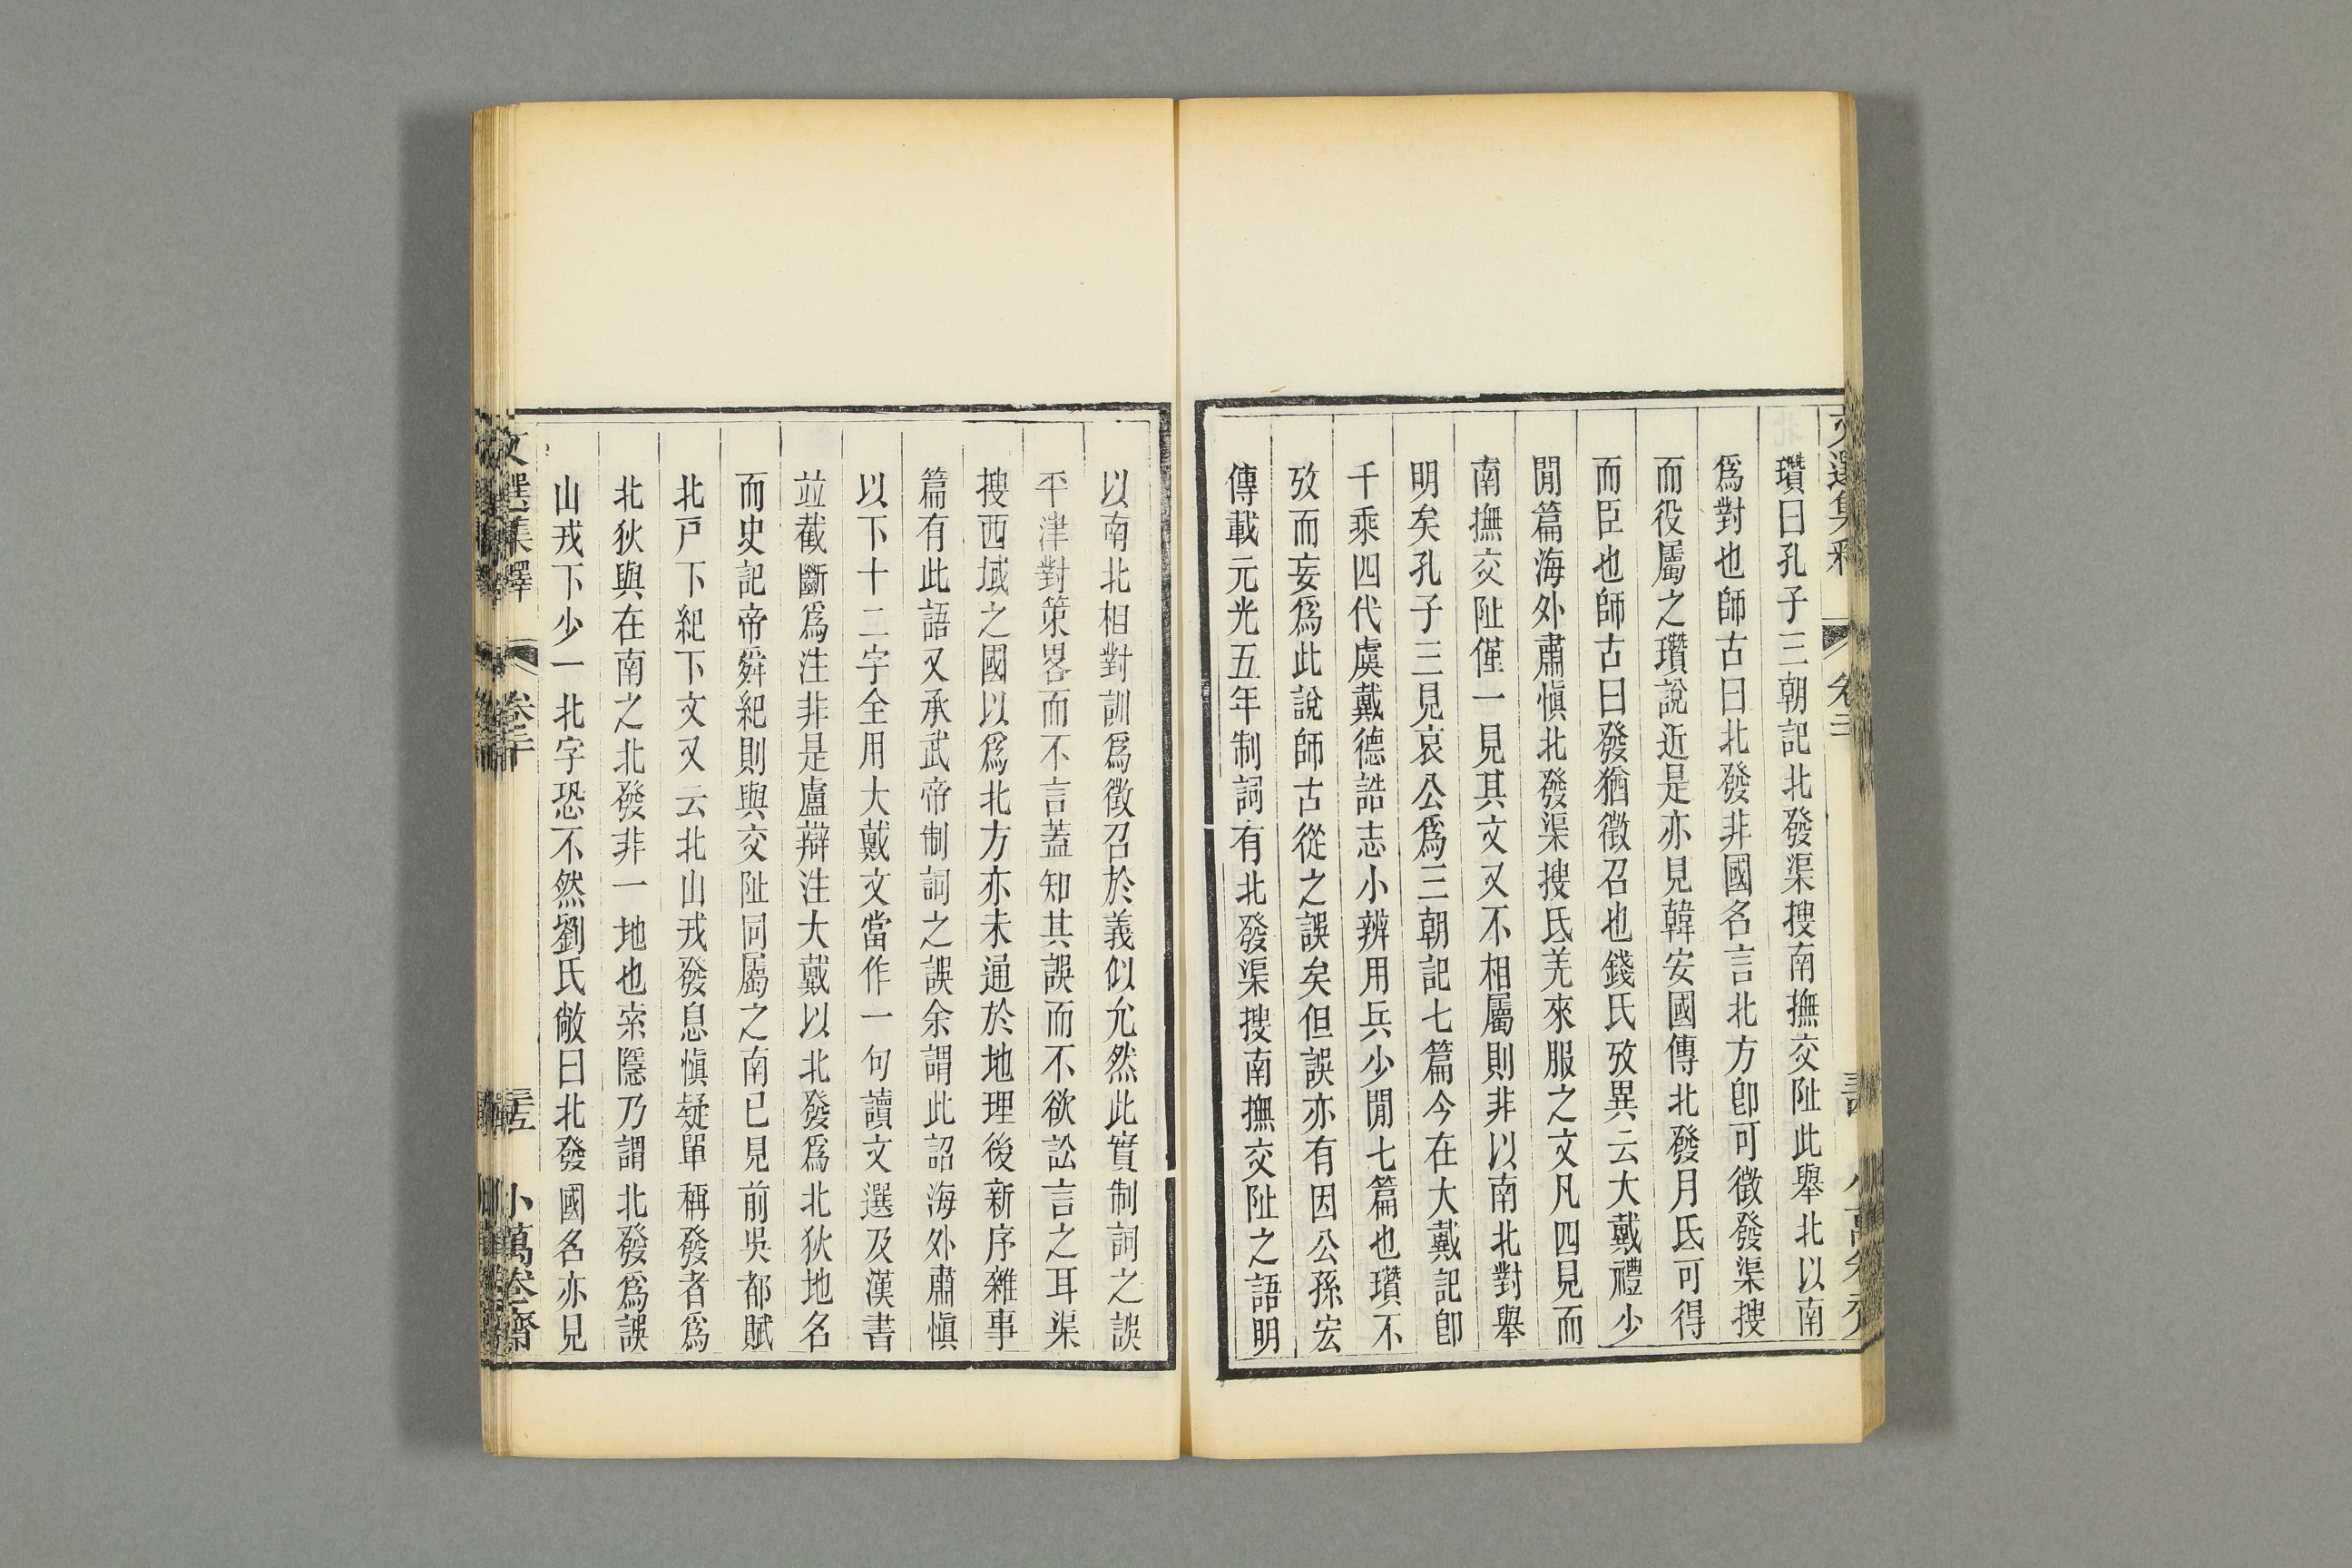 瓚曰孔子三朝記北發渠搜南撫交阯此舉北以南
爲對也師古曰北發非國名言北方卽可徵發渠搜
而役屬之瓚說近是亦見韓安國傳北發月氐可得
而臣也師古曰發猶徵召也錢氏攷異云大戴禮少
閒篇海外肅愼北發渠搜氐羌來服之文凡四見而
南撫交阯僅一見其文又不相屬則非以南北對舉
明矣孔子三見哀公爲三朝記七篇今在大戴記卽
千乘四代虞戴德誥志小辨用兵少閒七篇也瓚不
攷而妄爲此說師古從之誤矣但誤亦有因公孫宏
傳載元光五年制詞有北發渠搜南撫交阯之語明
以南北相對訓爲徵召於義似允然此實制詞之誤
平津對策畧而不言蓋知其誤而不欲訟言之耳渠
搜西域之國以爲北方亦未通於地理後新序雜事
篇有此語又承武帝制詞之誤余謂此詔海外肅愼
以下十二字全用大戴文當作一句讀文選及漢書
並截斷爲注非是盧辯注大戴以北發爲北狄地名
而史記帝舜紀則與交阯同屬之南已見前吳都賦
北戸下紀下文又云北山戎發息愼疑單稱發者爲
北狄與在南之北發非一地也索隱乃謂北發爲誤
山戎下少一北字恐不然劉氏敞曰北發國名亦見
文選集釋 卷二十 三五 小萬卷齋